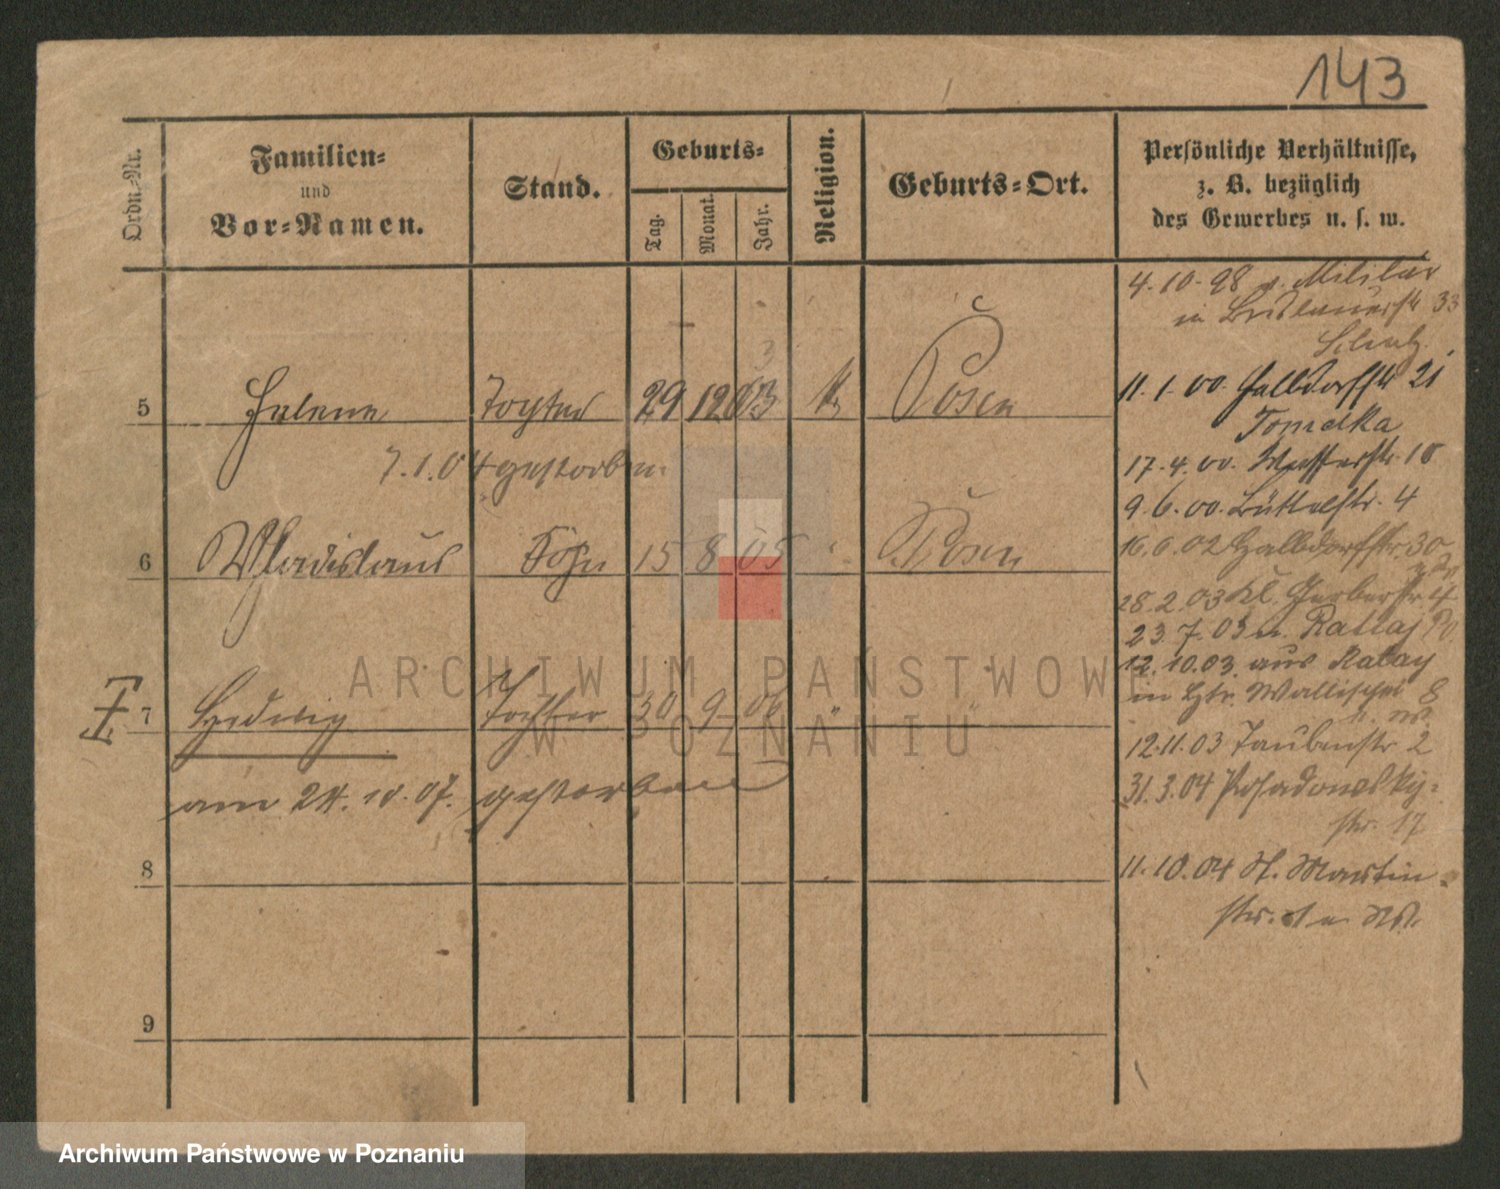 143
Ordn.-Nr.
Familien-
und
Vor-Namen.
Stand.
Geburts-
Tag.
Monat.
Jahr.
Religion.
Geburts-Ort.
Persönliche Verhältnisse,
z. B. bezüglich
des Gewerbes u. s. w.
4.10.98 v. Militär
in Breslauerstr 33
5 Helene Tochter 29 12 03 k Posen
3
7.1.04 gestorben
6 Wladislaus Sohn 15 8 05 " Posen
7 Hedwig Tochter 30 9 06 " "
am 24.10.07. gestorben
8
9
11.1.00. Halbdorfstr 21
Tomelka
17.4.00. Wasserstr 18
9.6.00. Büttelstr. 4
16.6.02 Halbdorfstr. 30
28.2.03 Kl. Gerberstr 4
23.7.03 n. Rattaj
12.10.03. aus Ratay
in Wallischei 8
12.11.03 Taubenstr 2
31.3.04 Posadowsky-
str. 17
11.10.04 St. Martin-
str.
ARCHIWUM PAŃSTWOWE
W POZNANIU
Archiwum Państwowe w Poznaniu